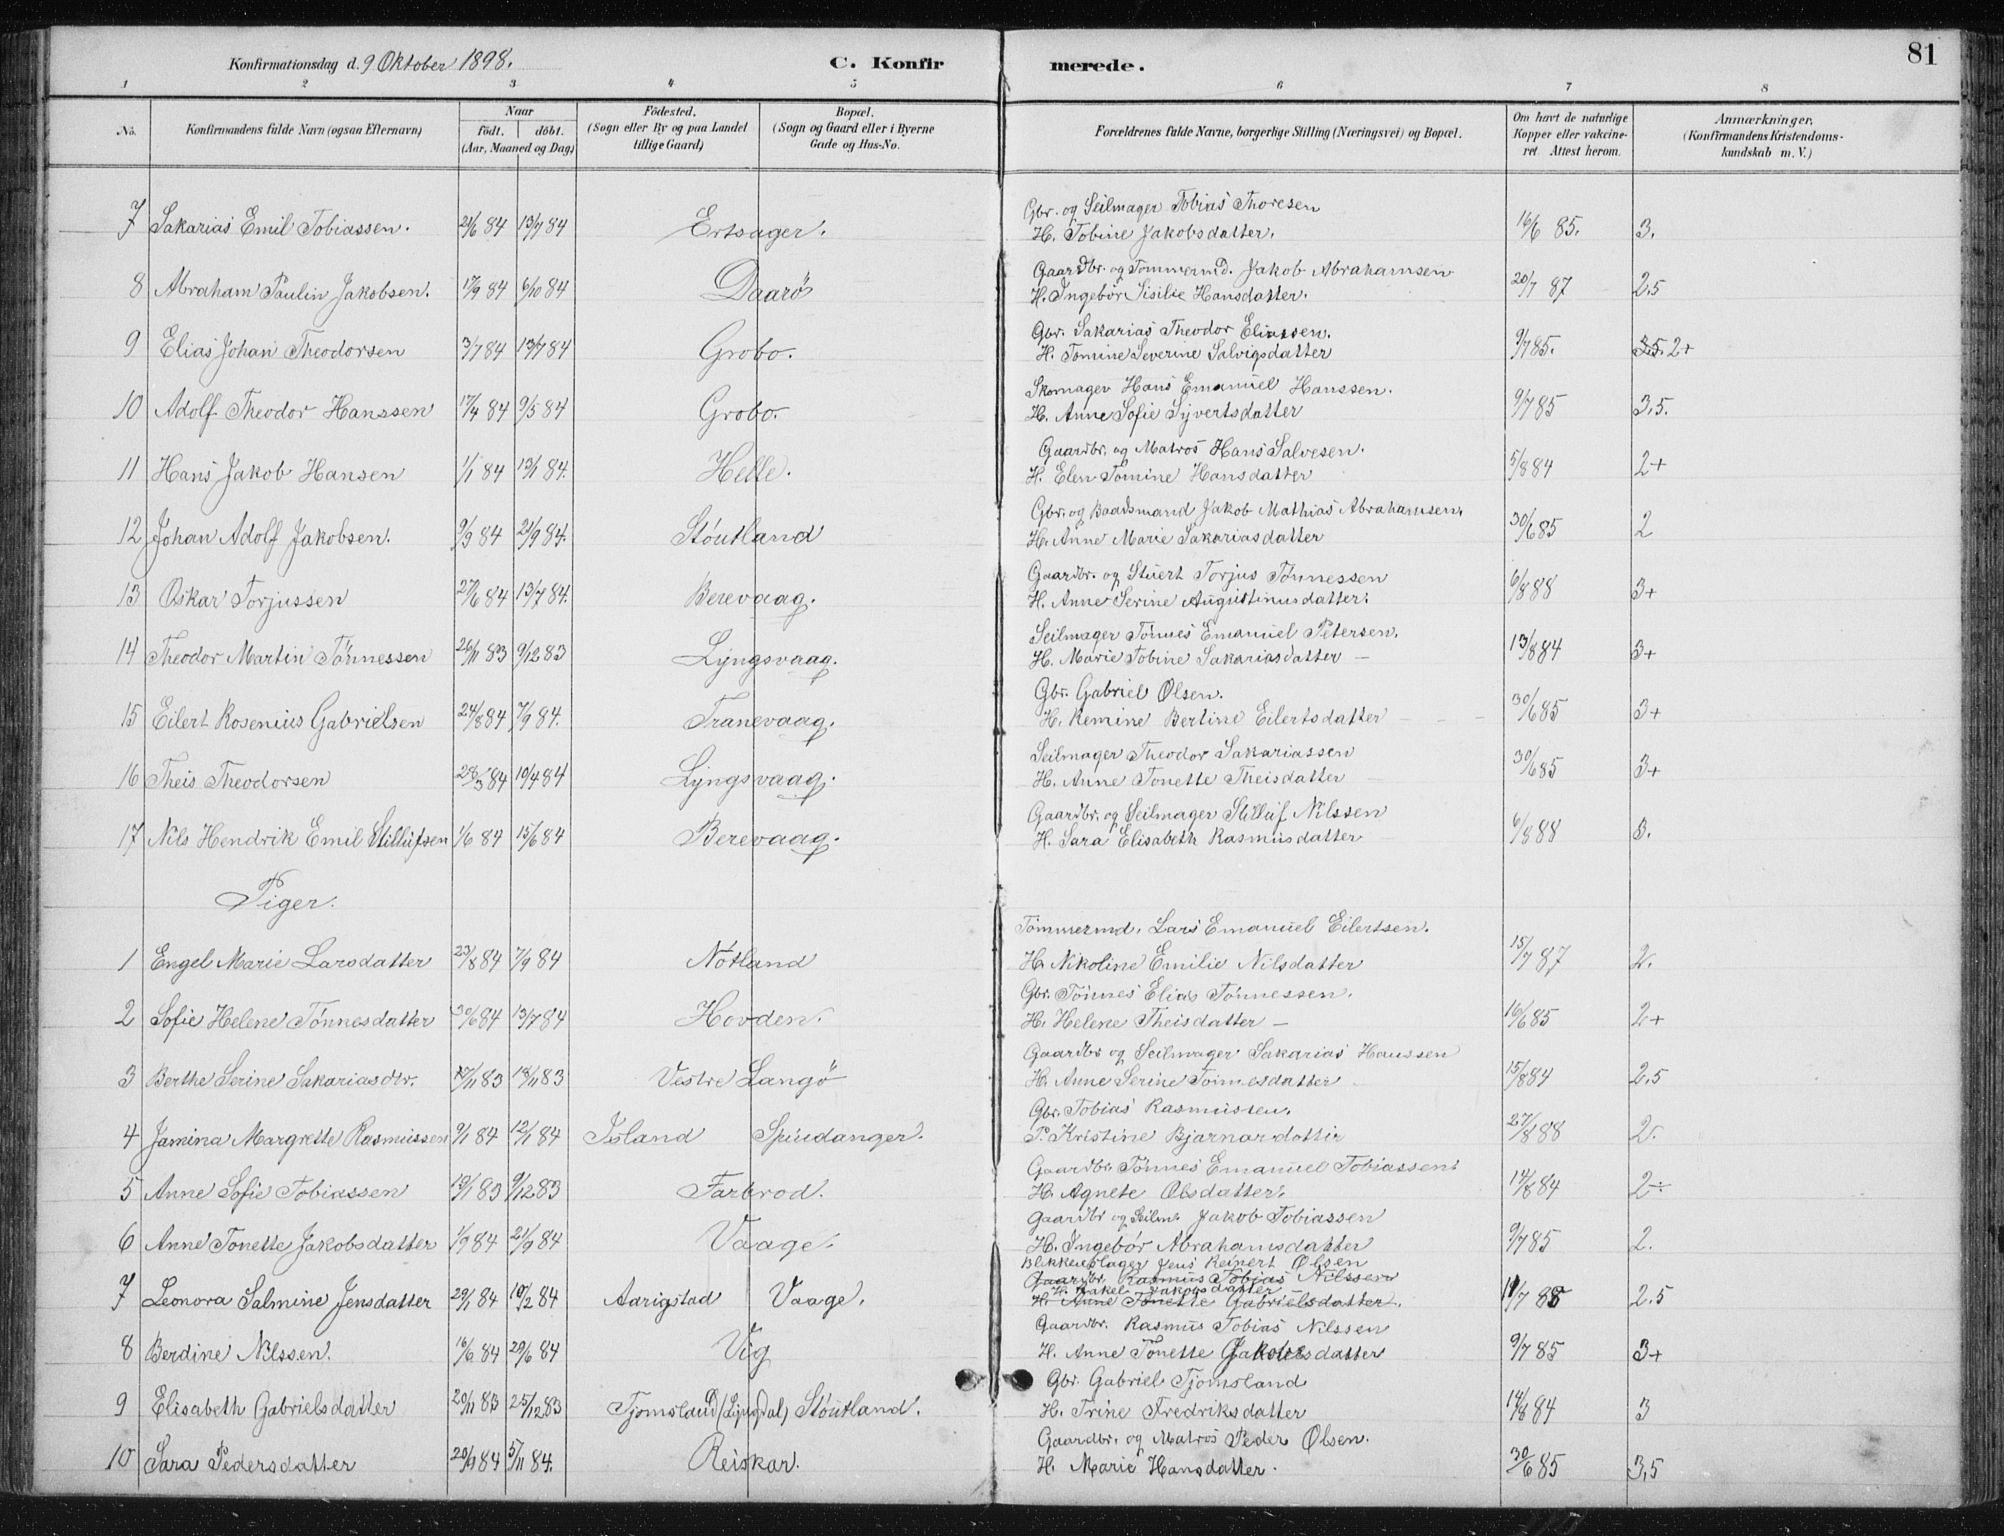 81
Konfirmationsdag d. 9 Oktober 1898.
C. Konfirmerede.
1 2 3 4 5 6 7 8
No.
Konfirmandens fulde Navn (ogsaa Efternavn)
Naar födt. döbt. (Aar, Maaned og Dag)
Födested. (Sogn eller By og paa Landet tillige Gaard)
Bopæl. (Sogn og Gaard eller i Byerne Gade og Hus-No.
Forældrenes fulde Navne, borgerlige Stilling (Næringsvei) og Bopæl.
Om havt de naturlige Kopper eller vakcineret. Attest herom.
Anmærkninger, (Konfirmandens Kristendomskundskab m. V.)
Gbr. og Seilmager Tobias Thoresen
7 Sakarias Emil Tobiassen. 21/6 84 13/7 84 Ertsager. H. Tobine Jakobsdatter. 16/6 85. 3.
Gaardbr. og Tømmermd. Jakob Abrahamsen
8 Abraham Paulin Jakobsen. 17/9 84 6/10 84 Daarø H. Ingebør Sisilie Hansdatter. 20/7 87 2,5
Gbr. Sakarias Theodor Eliassen.
9 Elias Johan Theodorsen 3/7 84 13/7 84 Grobo. H. Tomine Severine Salvigsdatter 9/7 85. 2+
Skomager Hans Emanuel Hanssen.
10 Adolf Theodor Hanssen 17/4 84 9/5 84 Grobo. H. Anne Sofie Syvertsdatter 9/7 85 3,5.
Gaardbr. og Matros Hans Salvesen.
11 Hans Jakob Hansen 1/1 84 13/1 84. Helle. H. Elen Tomine Hansdatter 5/8 84 2+
Gbr. og Baadsmand Jakob Mathias Abrahamsen.
12 Johan Adolf Jakobsen. 9/9 84 21/9 84. Støutland H. Anne Marie Sakariasdatter 30/6 85 2
Gaardbr. og Stuert Torjus Tønnessen
13 Oskar Torjussen 27/6 84 13/7 84. Berevaag. H. Anne Serine Augustinusdatter. 6/8 88 3+
Seilmager Tønnes Emanuel Petersen.
14 Theodor Martin Tønnessen 26/11 83 9/12 83 Lyngsvaag. H. Marie Tobine Sakariasdatter — 13/8 84 3+
Gbr. Gabriel Olsen.
15 Eilert Rosenius Gabrielsen 24/8 84 7/9 84. Tranevaag. H. Remine Bertine Eilertsdatter 30/6 85 3+
Seilmager Theodor Sakariassen
16 Theis Theodorsen 28/3 84 10/4 84 Lyngsvaag. H. Anne Tonette Theisdatter 30/6 85 3+
Gaardbr. og Seilmager Stilluf Nilssen
17 Nils Hendrik Emil Stillufsen 1/6 84 15/6 84 Berevaag. H. Sara Elisabeth Rasmusdatter 6/8 88 3.
Piger.
Tømmermd. Lars Emanuel Eilertsen.
1 Engel Marie Larsdatter 23/8 84 7/9 84 Nøtland H. Nikoline Emilie Nilsdatter 15/7 87 2.
Gbr. Tønnes Elias Tønnessen.
2 Sofie Helene Tønnesdatter 30/6 84 13/7 84 Hovden. H. Helene Theisdatter — 16/6 85 2+
Gaardbr og Seilmager Sakarias Hanssen
3 Berthe Serine Sakariasdtr. 18/11 83 Vestre Langø H. Anne Serine Tønnesdatter 15/8 84 2,5
Gbr. Tobias Rasmussen.
4 Jamina Margrette Rasmussen 9/1 84 12/1 84 Island Spindanger. P. Kristine Bjarnardottir 27/8 88 2.
Gaardbr. Tønnes Emanuel Tobiassen.
5 Anne Sofie Tobiassen 19/11 83 9/12 83 Farbrod. H. Agnete Olsdatter. 14/8 84 2÷
Gaardbr og Seilm. Jakob Tobiassen
6 Anne Tonette Jakobsdatter 1/9 84 21/9 84 Vaage. H. Ingebør Abrahamsdatter 9/7 85 2.
Blikkenslager Jens Reinert Olsen
Gaardbr. Rasmus Tobias Nilssen
H. Rakel Jakobsdatter
7 Leonora Salmine Jensdatter 29/1 84 10/2 84 Aarigstad Vaage. H. Anne Tonette Gabrielsdatter. 11/7 85 2.5
Gaardbr. Rasmus Tobias Nilssen
8 Berdine Nilssen. 16/6 84 29/6 84 Vig H. Anne Tonette Jakobsdatter 9/7 85 3+
Gbr. Gabriel Tjomsland
9 Elisabeth Gabrielsdatter 20/11 83 25/12 83 Tjomsland (Lyngdal) Støutland. H. Trine Fredriksdatter 14/8 84 3
Gaardbr. og Matros Peder Olsen.
10 Sara Pedersdatter 5/11 84. Reiskar. H. Marie Hansdatter. 30/6 85 3,5